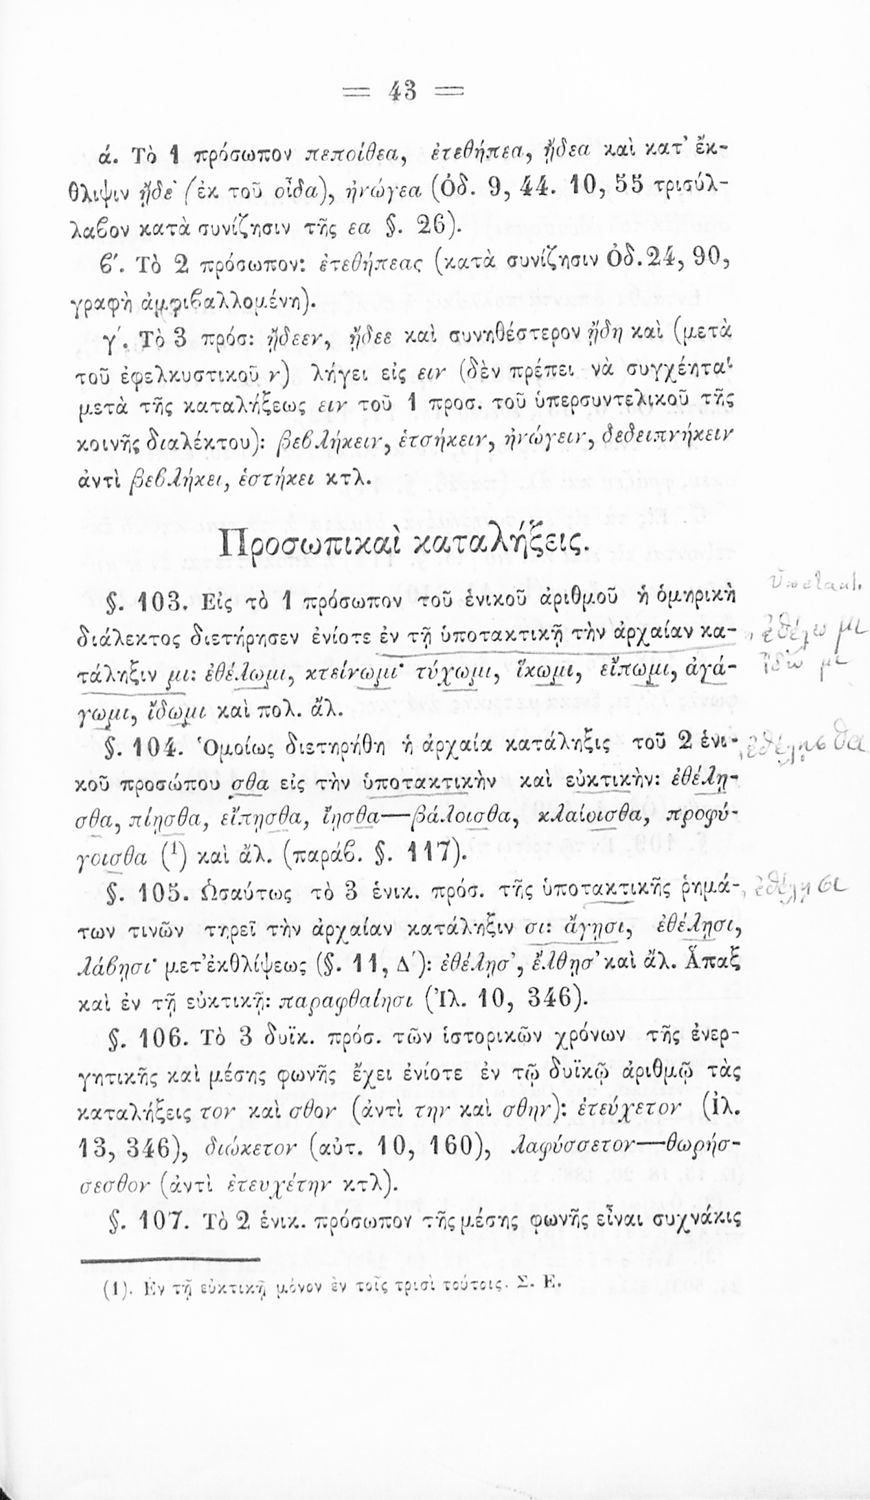 = 43 =
ά. Τὸ 1 πρόσωπον πεποίθεα, ἐτεθήπεα, ᾔδεα καὶ κατ' ἔκ-
θλιψιν ᾔδε' (ἐκ τοῦ οἶδα), ἠνώγεα (Ὀδ. 9, 44. 10, 55 τρισύλ-
λαβον κατὰ συνίζησιν τῆς εα §. 26).
β'. Τὸ 2 πρόσωπον: ἐτεθήπεας (κατὰ συνίζησιν Ὀδ. 24, 90,
γραφὴ ἀμφιβαλλομένη).
γ'. Τὸ 3 πρόσ: ᾔδεεν, ᾔδεε καὶ συνηθέστερον ᾔδη καὶ (μετὰ
τοῦ ἐφελκυστικοῦ ν) λήγει εἰς ειν (δὲν πρέπει νὰ συγχέηται
μετὰ τῆς καταλήξεως ειν τοῦ 1 προσ. τοῦ ὑπερσυντελικοῦ τῆς
κοινῆς διαλέκτου): βεβλήκειν, ἑτσήκειν, ἠνώγειν, δεδειπνήκειν
ἀντὶ βεβλήκει, ἑστήκει κτλ.
Προσωπικαὶ καταλήξεις.
§. 103. Εἰς τὸ 1 πρόσωπον τοῦ ἑνικοῦ ἀριθμοῦ ἡ ὁμηρικὴ
διάλεκτος διετήρησεν ἐνίοτε ἐν τῇ ὑποτακτικῇ τὴν ἀρχαίαν κα- ἐθέλω μι
τάληξιν μι: ἐθέλωμι, κτείνωμι· τύχωμι, ἵκωμι, εἴπωμι, ἀγά- ἴδω μι
γωμι, ἴδωμι καὶ πολ. ἄλ.
§. 104. Ὁμοίως διετηρήθη ἡ ἀρχαία κατάληξις τοῦ 2 ἑνι- ἐθέλησθα
κοῦ προσώπου σθα εἰς τὴν ὑποτακτικὴν καὶ εὐκτικὴν: ἐθέλη-
σθα, πίῃσθα, εἴπῃσθα, ἴῃσθα—βάλοισθα, κλαίοισθα, προφύ-
γοισθα (¹) καὶ ἄλ. (παράβ. §. 117).
§. 105. Ὡσαύτως τὸ 3 ἑνικ. πρόσ. τῆς ὑποτακτικῆς ῥημά- ἐθέλῃσι
των τινῶν τηρεῖ τὴν ἀρχαίαν κατάληξιν σι: ἄγῃσι, ἐθέλῃσι,
λάβῃσι· μετ' ἐκθλίψεως (§. 11, Δ'): ἐθέλησ', ἔλθησ' καὶ ἄλ. Ἅπαξ
καὶ ἐν τῇ εὐκτικῇ: παραφθαίησι (Ἰλ. 10, 346).
§. 106. Τὸ 3 δυϊκ. πρόσ. τῶν ἱστορικῶν χρόνων τῆς ἐνερ-
γητικῆς καὶ μέσης φωνῆς ἔχει ἐνίοτε ἐν τῷ δυϊκῷ ἀριθμῷ τὰς
καταλήξεις τον καὶ σθον (ἀντὶ την καὶ σθην): ἐτεύχετον (Ἰλ.
13, 346), διώκετον (αὐτ. 10, 160), λαφύσσετον—θωρήσ-
σεσθον (ἀντὶ ἐτευχέτην κτλ).
§. 107. Τὸ 2 ἑνικ. πρόσωπον τῆς μέσης φωνῆς εἶναι συχνάκις
(1). Ἐν τῇ εὐκτικῇ μόνον ἐν τοῖς τρισὶ τούτοις. Σ. Ε.